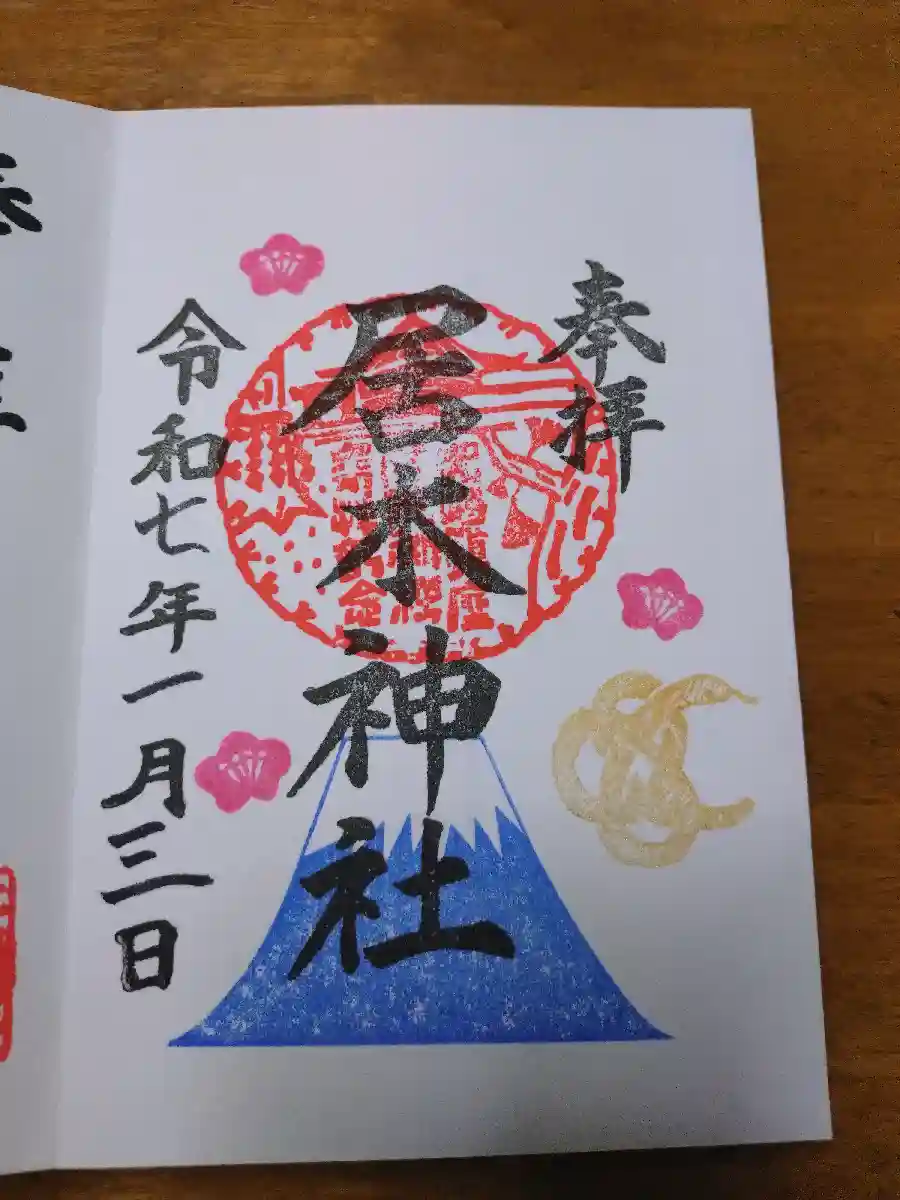 奉拝
居木神社
令和七年一月三日